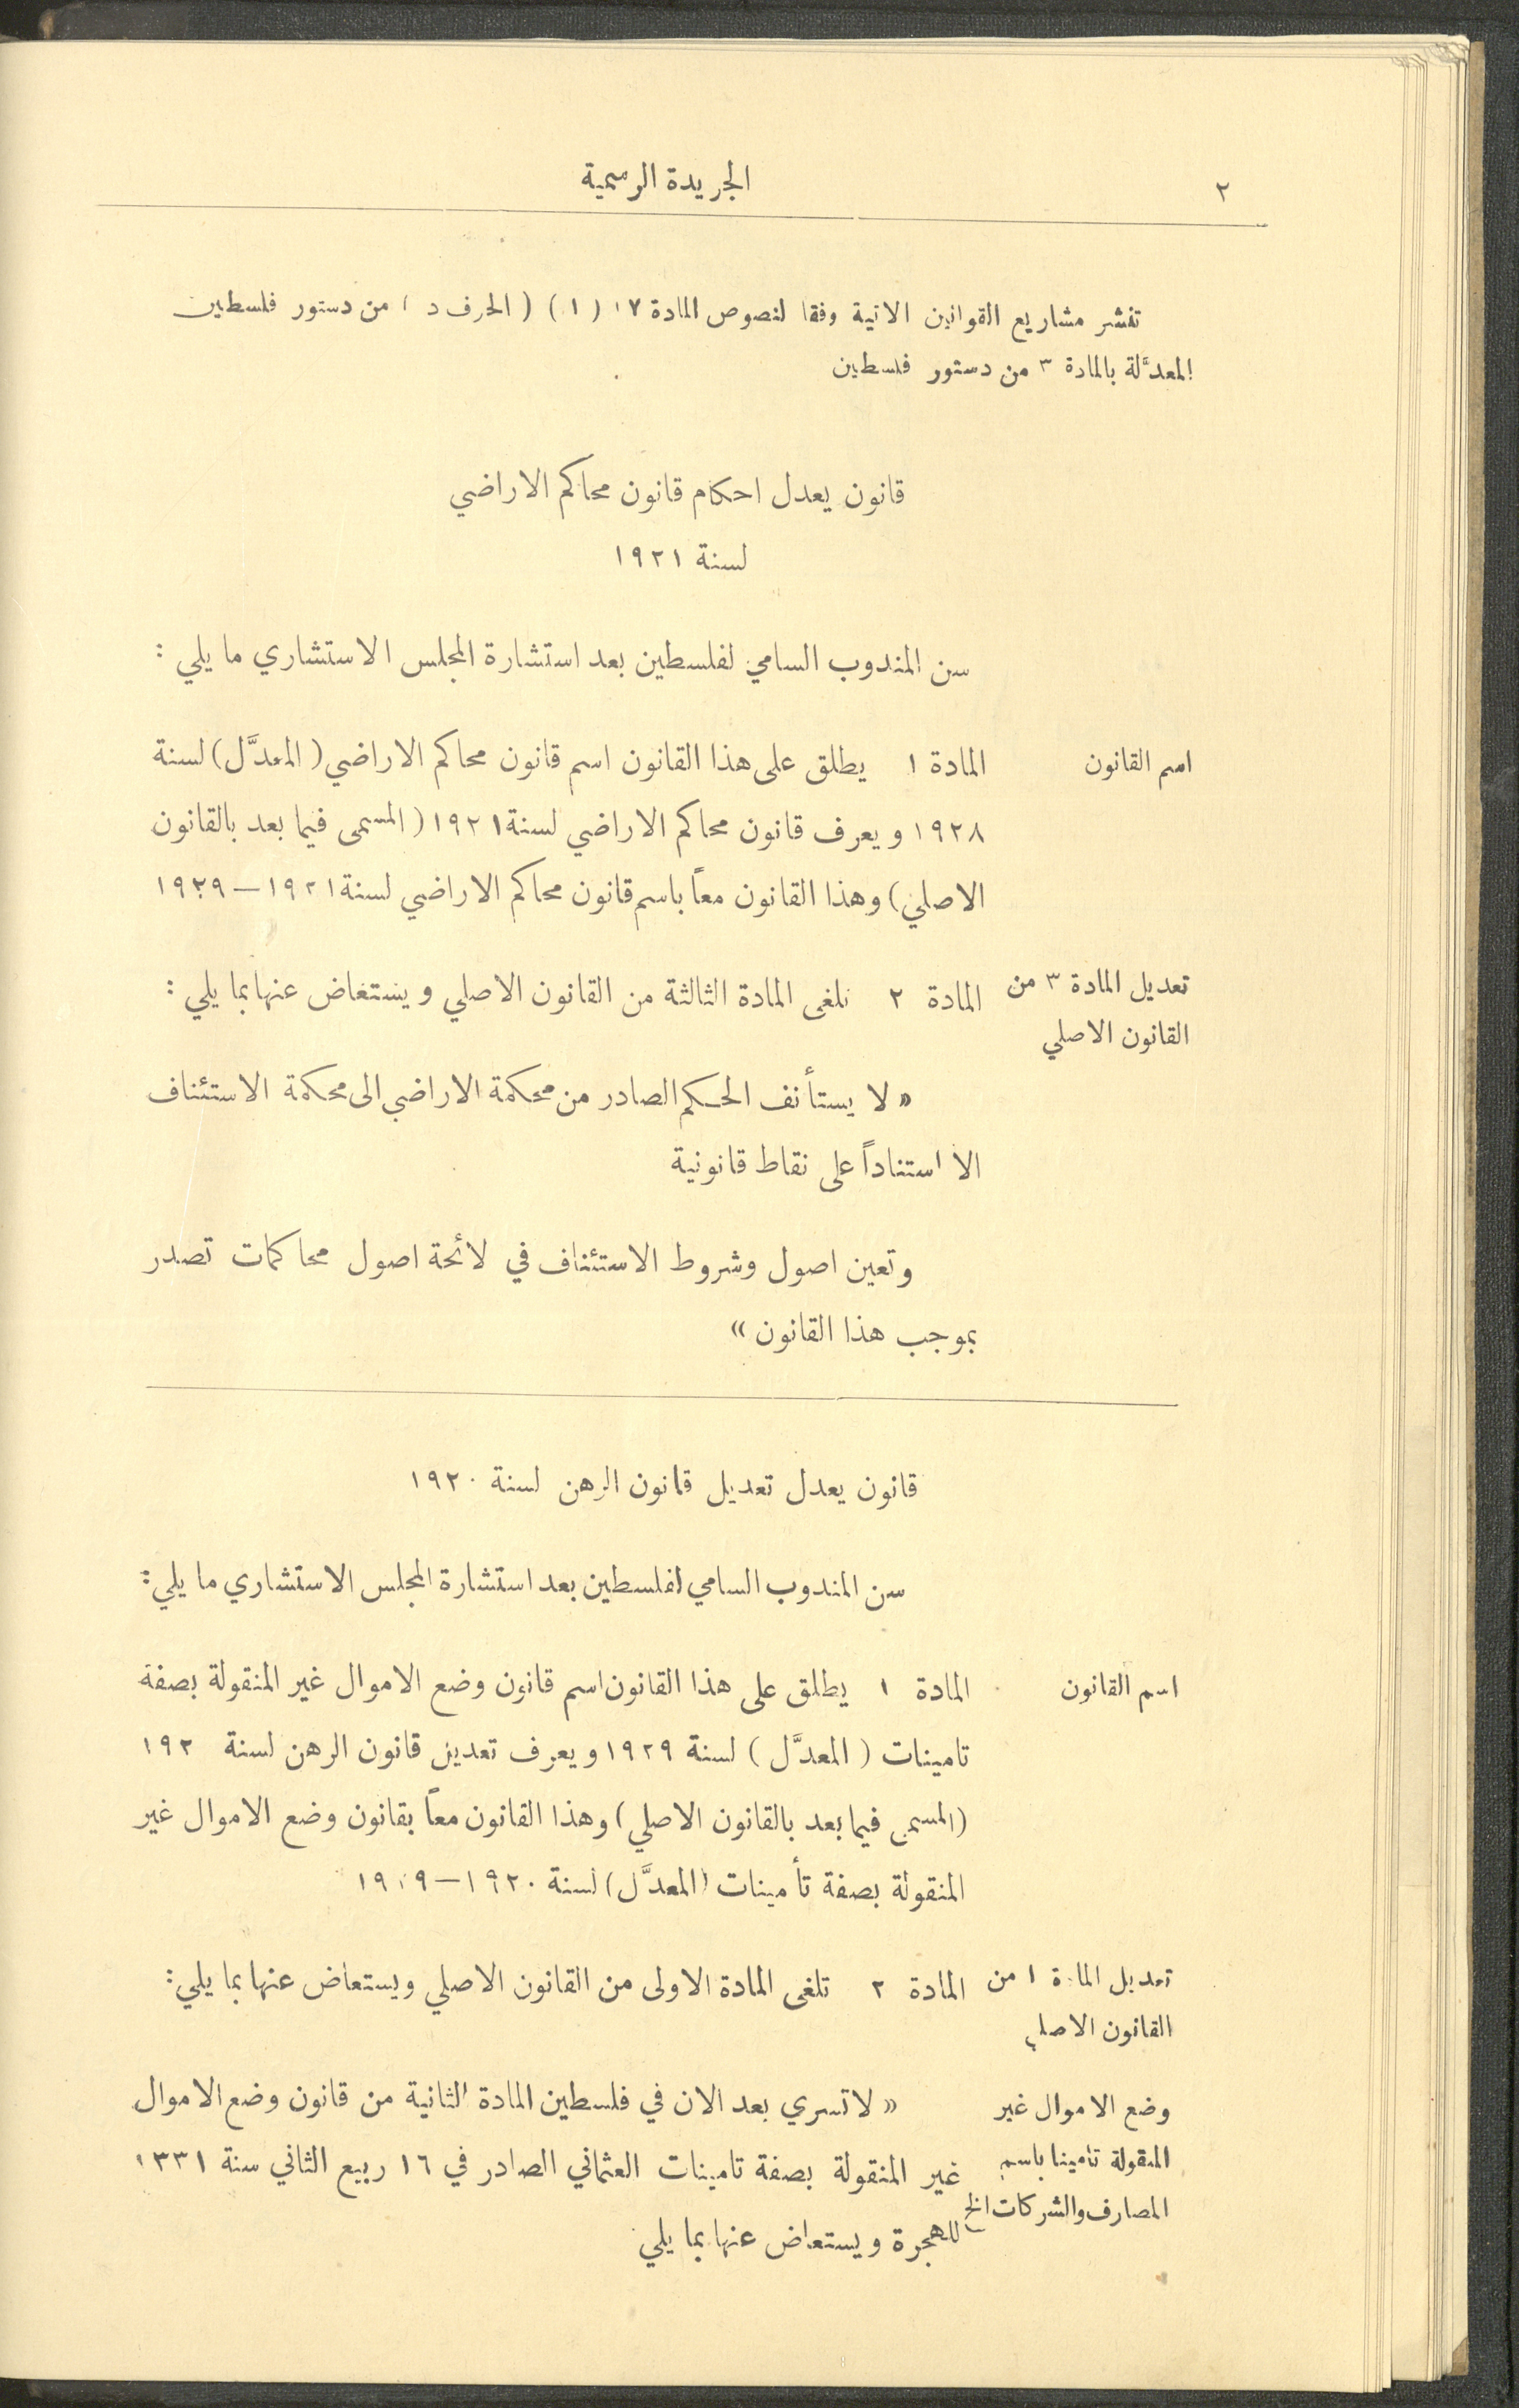 ٢
الجريدة الرسمية
تنشر مشاريع القوانين الاتية وفقا لنصوص المادة ١٧ (١) (الحرف د) من دستور فلسطين
المعدَّلة بالمادة ٣ من دستور فلسطين
قانون يعدل احكام قانون محاكم الاراضي
لسنة ١٩٢١
سن المندوب السامي لفلسطين بعد استشارة المجلس الاستشاري ما يلي :
اسم القانون
المادة ١ يطلق على هذا القانون اسم قانون محاكم الاراضي (المعدَّل) لسنة
١٩٢٨ ويعرف قانون محاكم الاراضي لسنة ١٩٢١ (المسمى فيما بعد بالقانون
الاصلي) وهذا القانون معاً باسم قانون محاكم الاراضي لسنة ١٩٢١ — ١٩٢٩
تعديل المادة ٣ من
القانون الاصلي
المادة ٢ تلغى المادة الثالثة من القانون الاصلي ويستعاض عنها بما يلي :
« لا يستأنف الحكم الصادر من محكمة الاراضي الى محكمة الاستئناف
الا استناداً على نقاط قانونية
وتعين اصول وشروط الاستئناف في لائحة اصول محاكمات تصدر
بموجب هذا القانون »
قانون يعدل تعديل قانون الرهن لسنة ١٩٢٠
سن المندوب السامي لفلسطين بعد استشارة المجلس الاستشاري ما يلي :
اسم القانون
المادة ١ يطلق على هذا القانون اسم قانون وضع الاموال غير المنقولة بصفة
تامينات (المعدَّل) لسنة ١٩٢٩ ويعرف تعديل قانون الرهن لسنة ١٩٢
(المسمى فيما بعد بالقانون الاصلي) وهذا القانون معاً بقانون وضع الاموال غير
المنقولة بصفة تأمينات (المعدَّل) لسنة ١٩٢٠ — ١٩٢٩
تعديل المادة ١ من
القانون الاصلي
المادة ٢ تلغى المادة الاولى من القانون الاصلي ويستعاض عنها بما يلي :
وضع الاموال غير
المنقولة تامينا باسم
المصارف والشركات الخ
« لا تسري بعد الان في فلسطين المادة الثانية من قانون وضع الاموال
غير المنقولة بصفة تامينات العثماني الصادر في ١٦ ربيع الثاني سنة ١٣٣١
للهجرة ويستعاض عنها بما يلي